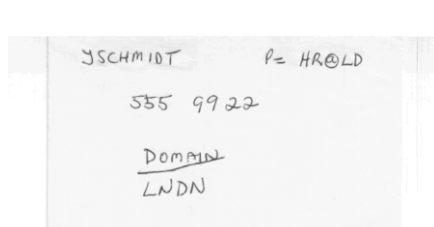 YSCHMIDT P= HR@LD
555 9922
DOMAIN
LNDN